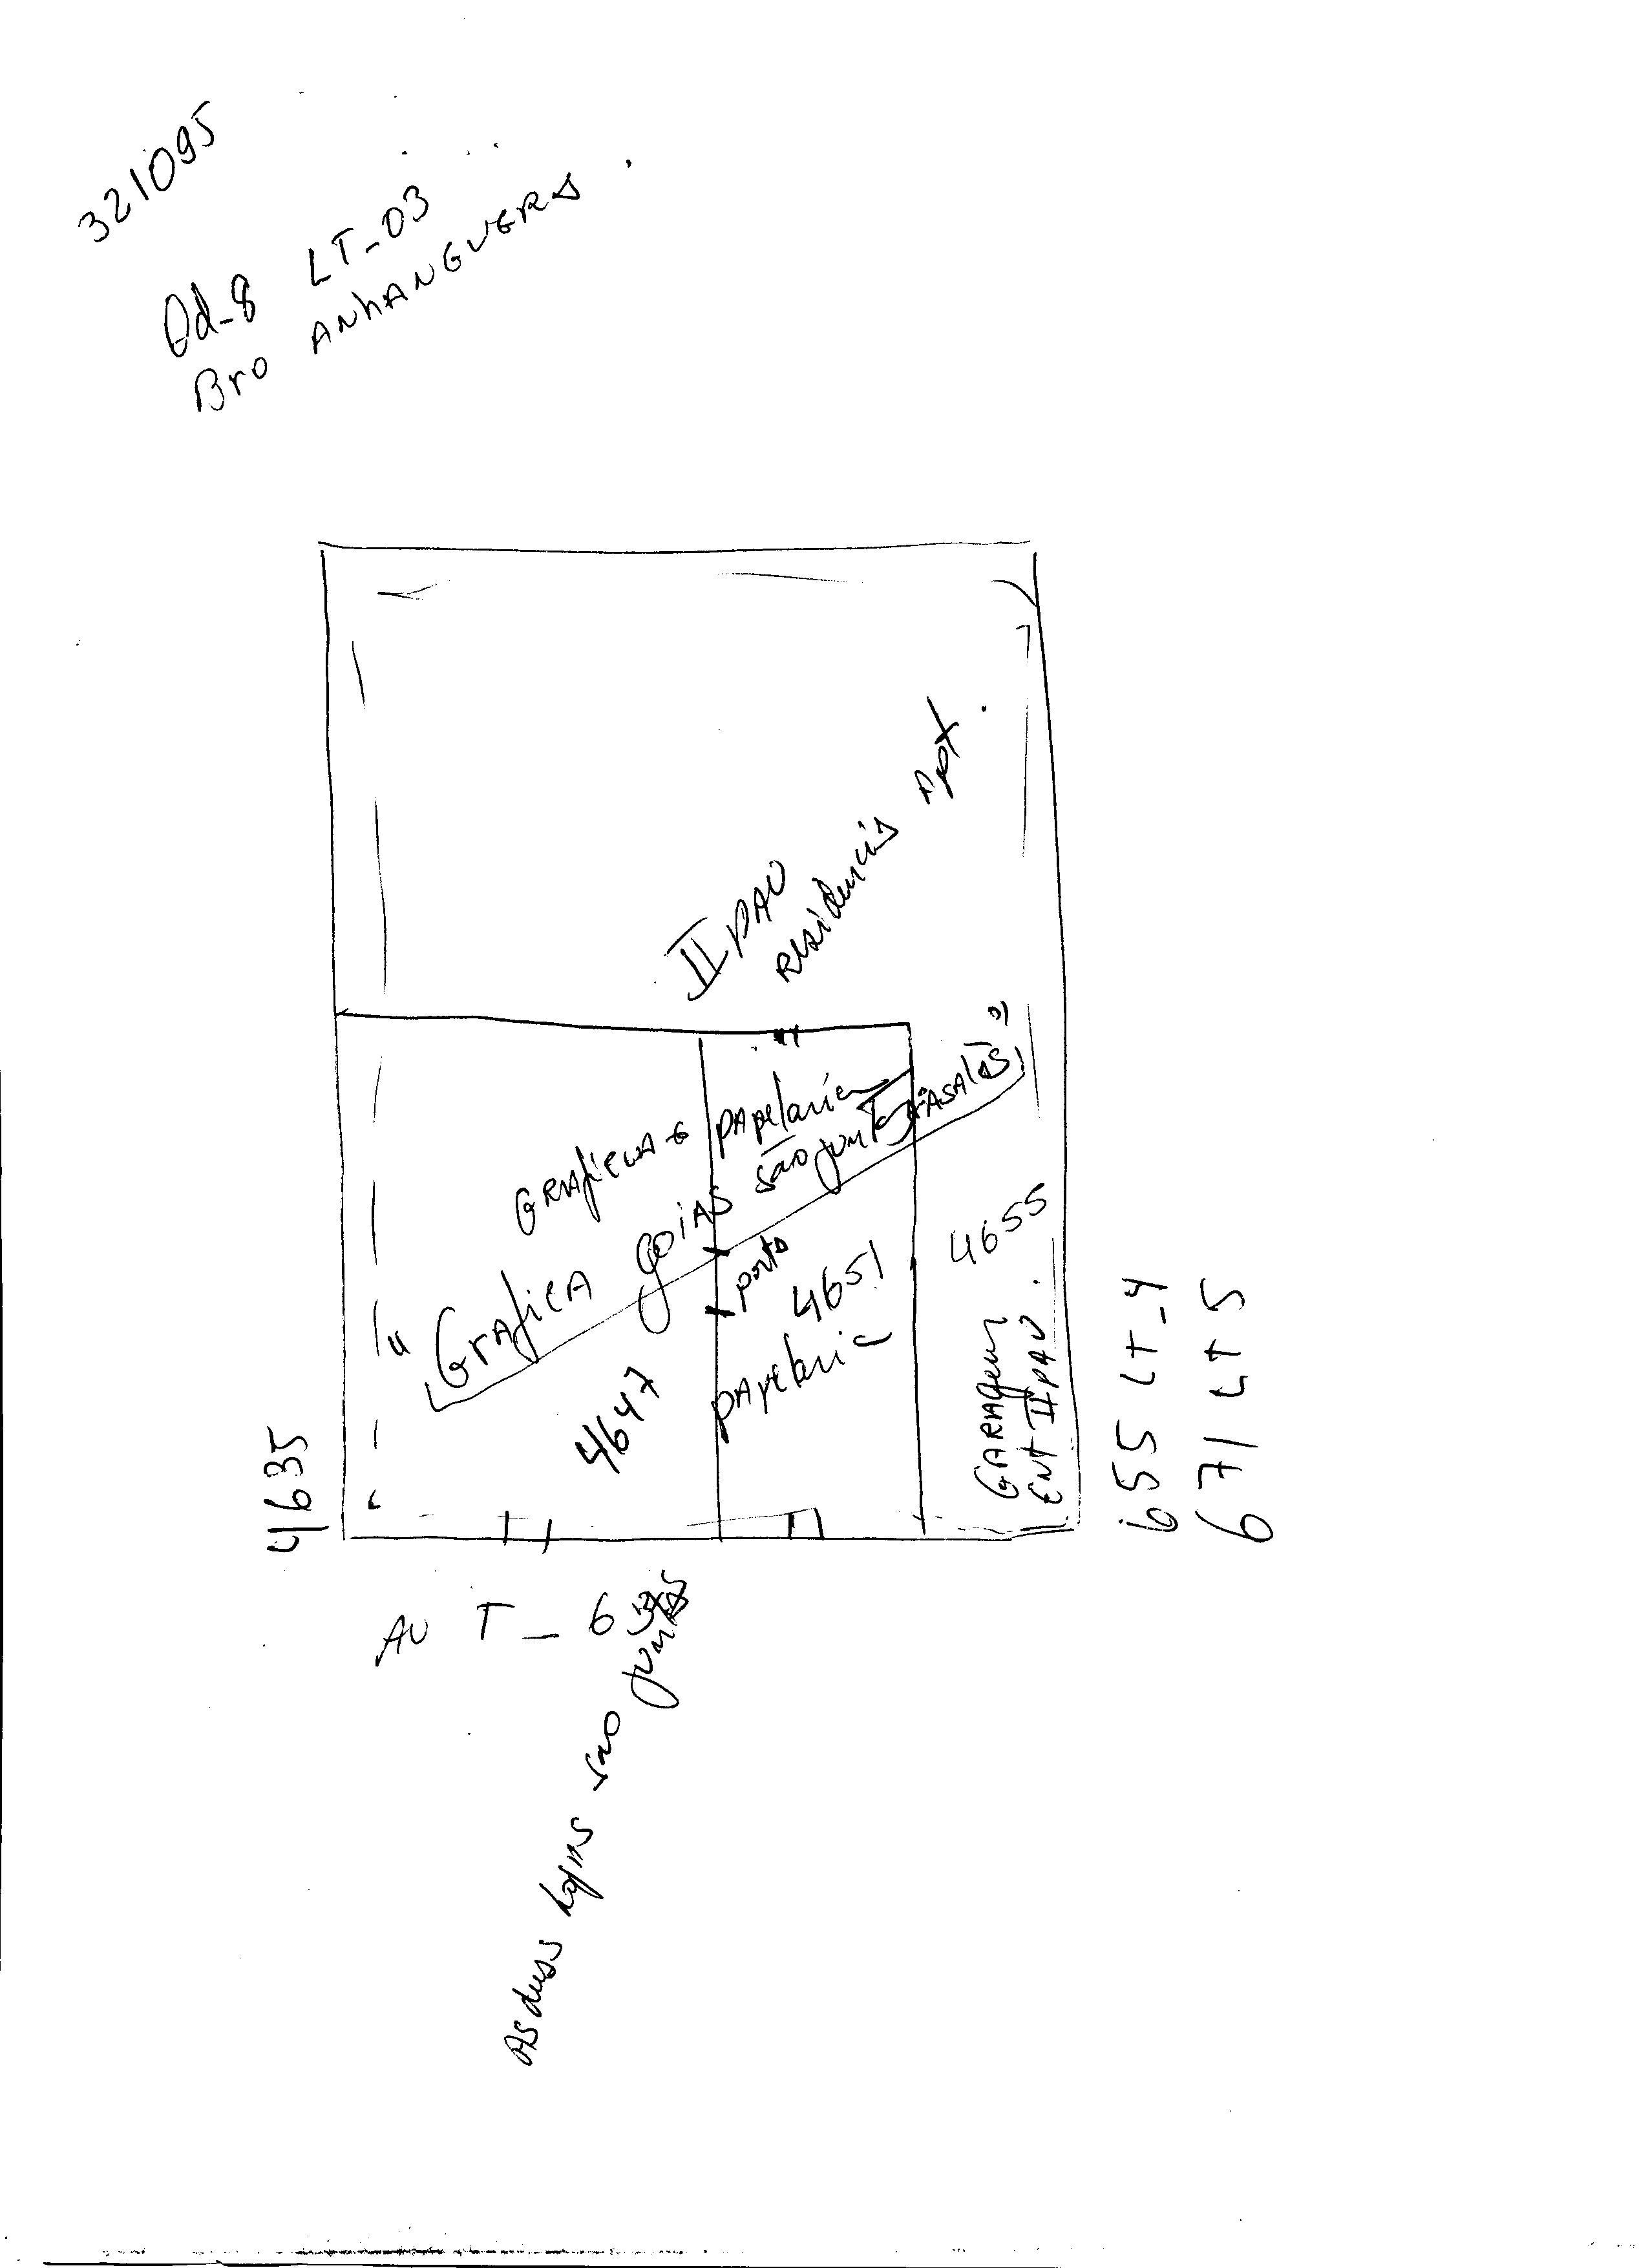 321095
Qd-8 LT-03
Bro ANhANGUERA
II PAV
residencia Apt.
GRAficA e PAPelaria
GrAficA goiAS são juntas
porta
4647
4651
PAPelaria
4655
GARAgem
Ent II PAV.
4635
655 Lt-4
671 Lt 5
AV T-63
AS duas lojas são juntas